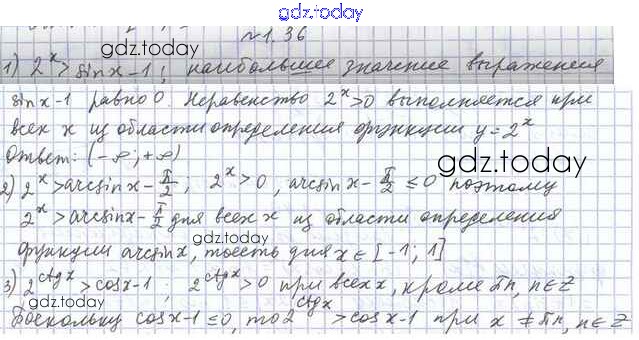 gdz.today
№1.36
gdz.today
1) 2^x > sin x − 1; наибольшее значение выражения
sin x−1 равно 0. Неравенство 2^x>0 выполняется при
всех x из области определения функции y=2^x
Ответ: (−∞; +∞)
gdz.today
2) 2^x > arcsin x − π/2; 2^x > 0, arcsin x − π/2 ≤ 0 поэтому
2^x > arcsin x − π/2 для всех x из области определения
gdz.today
функции arcsin x, то есть для x ∈ [−1; 1]
3) 2^ctg x > cos x −1; 2^ctg x > 0 при всех x, кроме πn, n∈Z
gdz.today
gdz.today
Поскольку cos x−1 ≤ 0, то 2^ctg x > cos x −1 при x ≠ πn, n ∈ Z